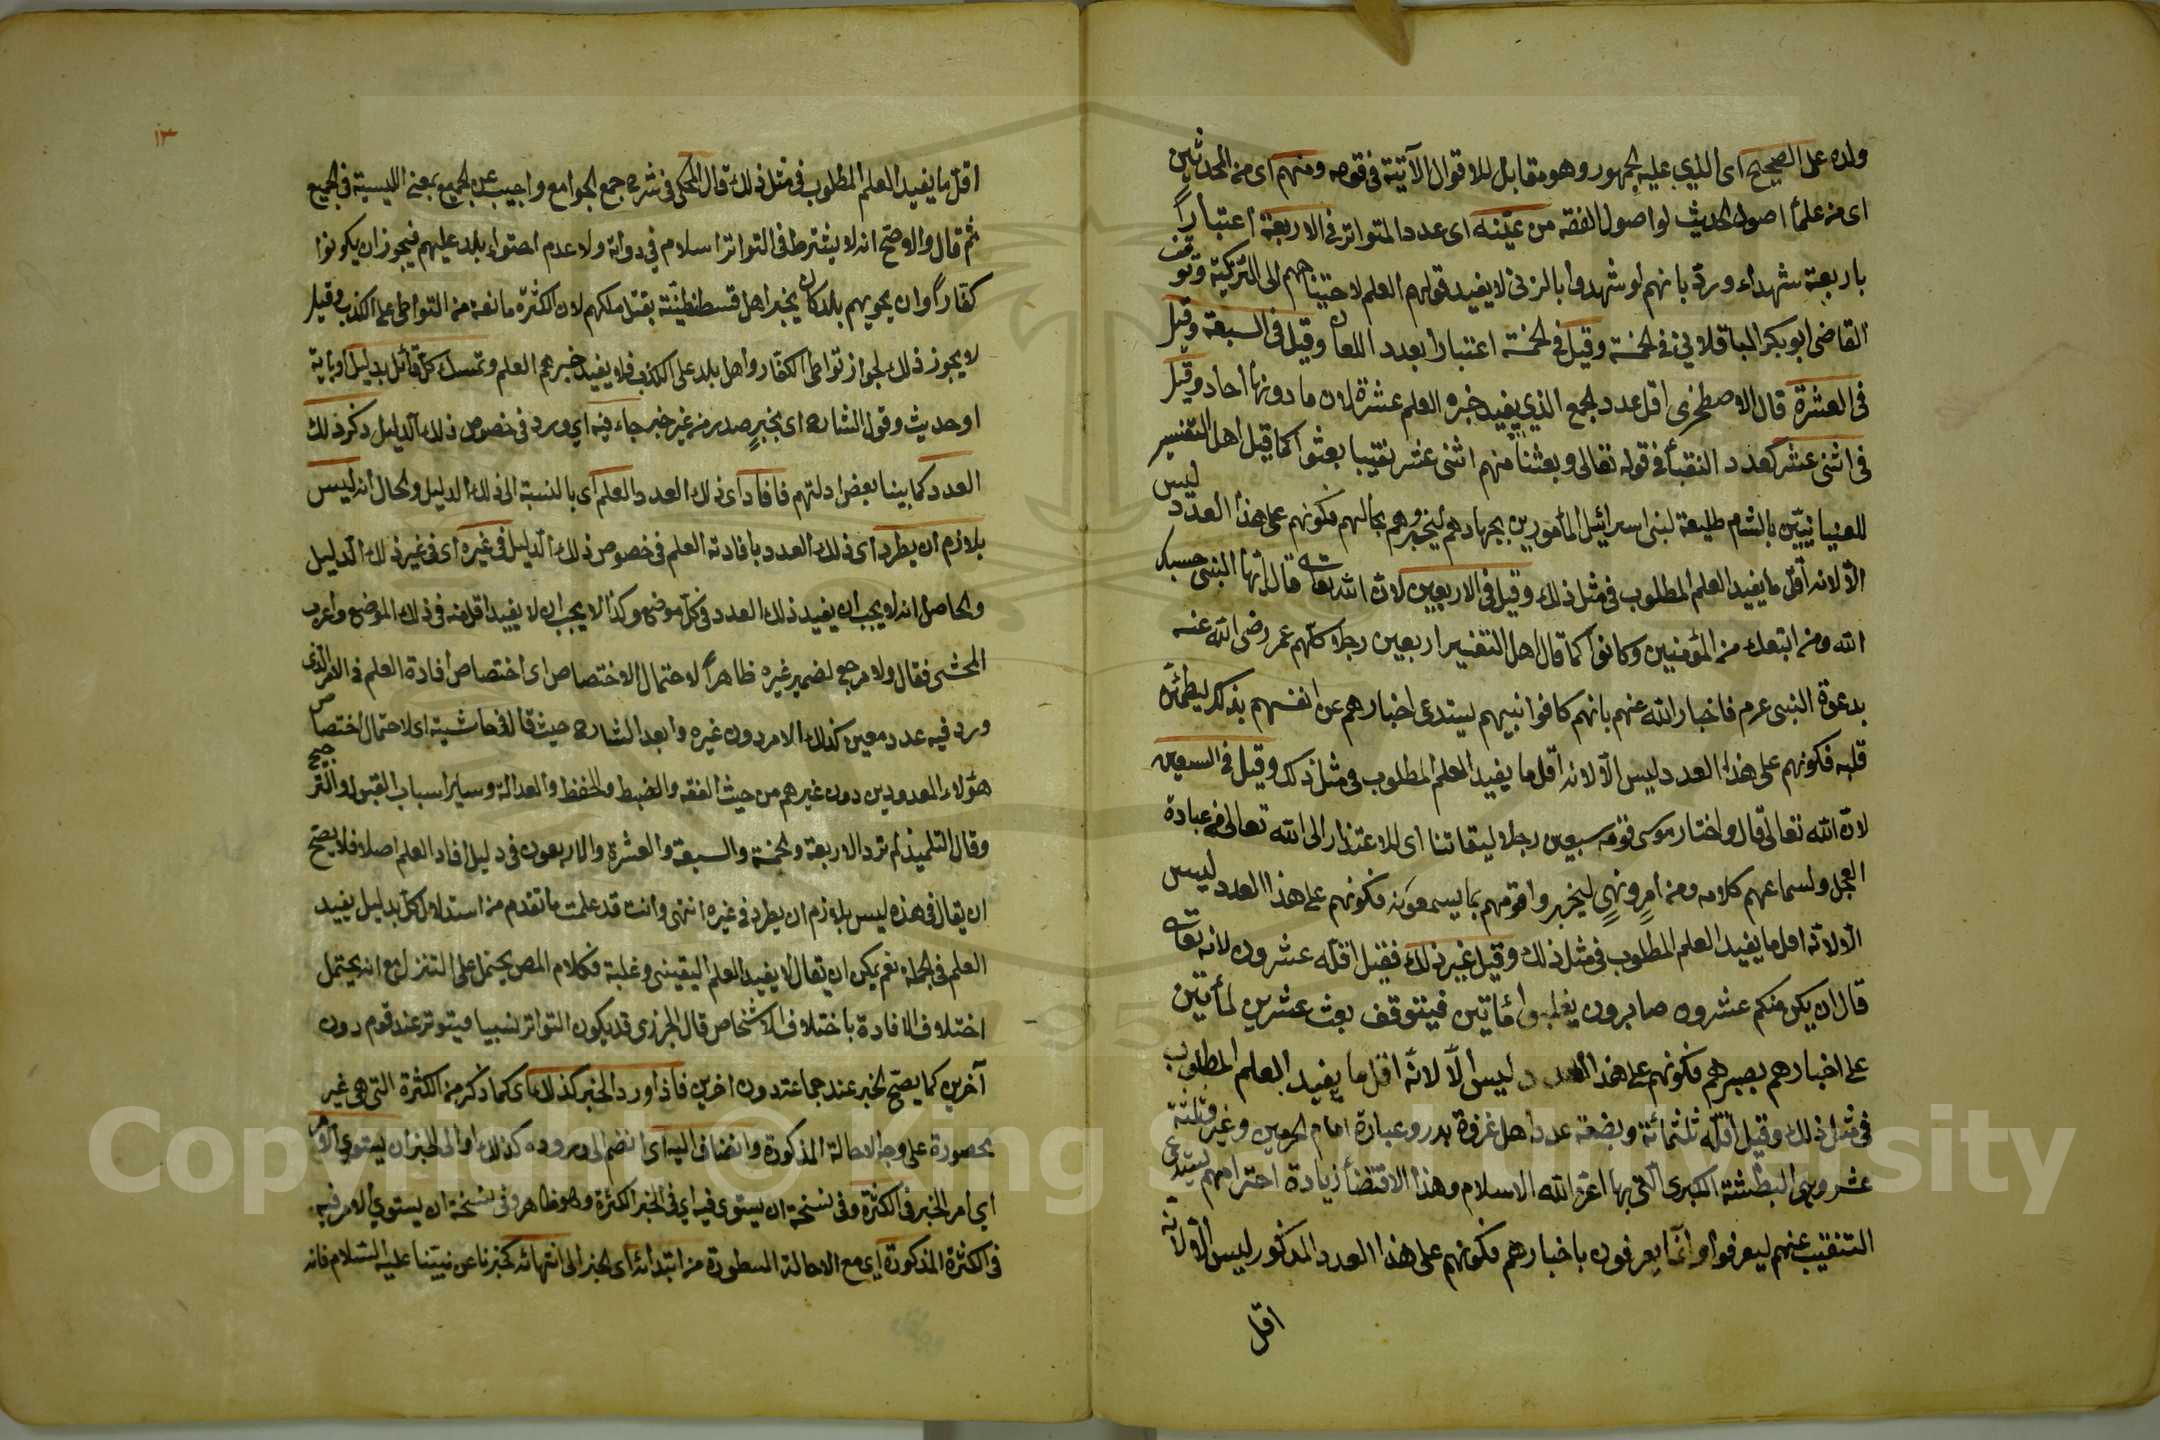 ولده على الصحيح اى الذي عليه الجمهور وهو مقابل للاقوال الآتية فى قوله ومنهم اى من المحدثين
اى من علمأ اصول الحديث او اصول الفقه من عيّنه اى عدد المتواتر فى الاربعة اعتباراً
باربعة شهداء وردّ بانهم لو شهدوا بالزنى لا يفيد قولهم العلم لاحتياجهم الى التزكية وتوقف
القاضى ابو بكر الباقلاني فى الخمسة وقيل فى الخمسة اعتبارا بعدد اللعان وقيل فى السبعة وقيل
فى العشرة قال الاصطخرى اقل عدد الجمع الذي يفيد خبره العلم عشرة لان ما دونها احاد وقيل
فى اثنى عشر كعدد النقبأ فى قوله تعالى وبعثنا منهم اثنى عشر نقيبا بعثوا كما قيل اهل التفسير
للكنعانيين بالشام طليعة لبنى اسرائيل المأمورين بجهادهم ليخبروهم بحالهم فكونهم على هذا العدد ليس
الّا لانه اقلّ ما يفيد العلم المطلوب فى مثل ذلك وقيل فى الاربعين لانّ الله تعالى قال يا ايها النبى حسبك
الله ومن اتبعك من المؤمنين وكانوا كما قال اهل التفسير اربعين رجلا كمّلهم عمر رضى الله عنه
بدعوة النبى عم فاخبار الله عنهم بانهم كافوا نبيهم يستدعى اخبارهم عن انفسهم بذلك ليطمئن
قلبه فكونهم على هذا العدد ليس الّا لانه اقل ما يفيد العلم المطلوب فى مثل ذلك وقيل فى السبعين
لانّ الله تعالى قال واختار موسى قومه سبعين رجلا لميقاتنا اى للاعتذار الى الله تعالى من عبادة
العجل ولسماعهم كلامه من امر ونهي ليخبروا قومهم بما يسمعونه فكونهم على هذا العدد ليس
الّا لانّه اقل ما يفيد العلم المطلوب فى مثل ذلك وقيل غير ذلك فقيل اقلّه عشرون لانه تعالى
قال ان يكن منكم عشرون صابرون يغلبوا مائتين فيتوقف بعث عشرين لمأتين
على اخبارهم بصبرهم فكونهم على هذا العدد ليس الّا لانّه اقل ما يفيد العلم المطلوب
فى مثل ذلك وقيل اقلّه ثلثمائة وبضعة عدد اهل غزوة بدر وعبارة امام الحرمين وغيره وثلثة
عشر وهي البطشة الكبرى التى بها اعزّ الله الاسلام وهذا لاقتضأ زيادة احترامهم يستدعى
التنقيب عنهم ليعرفوا وانما يعرفون باخبارهم فكونهم على هذا العدد المذكور ليس الّا لانّه
اقل
١٣
اقلّ ما يفيد العلم المطلوب فى مثل ذلك قال المحلى فى شرح جمع الجوامع واجيب عن الجميع بمعنى الليسية فى الجميع
ثم قال والاصحّ انه لا يشترط فى التواتر اسلام فى رواته ولا عدم احتواء بلد عليهم فيجوز ان يكونوا
كفاراً وان يحويهم بلد كان يخبر اهل قسطنطنيّة بقتل ملكهم لان الكثرة مانعة من التواطئ على الكذب وقيل
لا يجوز ذلك لجواز تواطئ الكفار واهل بلد على الكذب فلا يفيد خبرهم العلم وتمسك كلّ قائل بدليل او باية
او حديث وقول الشارح اى بخبرٍ صدر من غير خبر جاء فيه اي ورد فى خصوص ذلك الدليل ذكر ذلك
العدد كما بينا بعض ادلتهم فافاد اى ذلك العدد العلم اى بالنسبة الى ذلك الدليل والحال انه ليس
بلازم ان يطرد اى ذلك العدد بافادته العلم فى خصوص ذلك الدليل فى غيره اى فى غير ذلك الدليل
والحاصل انه لا يجب ان يفيد ذلك العدد فى كلّ موضع وكذا لا يجب ان لا يفيد اقل منه فى ذلك الموضع واعرب
المحشى فقال ولا مرجع لضمير غيره ظاهراً لاحتمال الاختصاص اى اختصاص افادة العلم فى الفرد الذى
ورد فيه عدد معين كذلك الامر دون غيره وابعد الشارح حيث قال فى حاشيته اى لاحتمال اختصاص
هؤلاء المعدودين دون غيرهم من حيث الفقه والضبط والحفظ والعدالة وسائر اسباب القبول والترجيح
وقال التلميذ لم ترد الاربعة والخمسة والسبعة والعشرة والاربعون فى دليل افاد العلم اصلا فلا يصحّ
ان يقال فى هذه ليس بلازم ان يطرد فى غيره انتهى وانت قد علمت ما تقدم من استدلال كلّ بدليل يفيد
العلم فى الجملة نعم يمكن ان يقال لا يفيد العلم اليقينى وغلبة فكلام المص يحتمل على التنزل مع انه يحتمل
اختلاف الافادة باختلاف الاشخاص قال الجزرى قد يكون التواتر نسبيا فيتوتر عند قوم دون
آخرين كما يصحّ الخبر عند جماعة دون اخرين فاذا ورد الخبر كذلك اى كما ذكر من الكثرة التى هى غير
محصورة على وجه الاحالة المذكورة وانضاف اليه اى انضم الى وروده كذلك او الى الخبر ان يستوي الامر
اي امر الخبر فى الكثرة وفى نسخة ان يستوى فيه اي فى الخبر الكثرة وهو ظاهر وفى نسخة ان يستوي الامر فيه
فى الكثرة المذكورة اي مع الاحالة المسطورة من ابتدائه اى الخبر الى انتهائه كخبرنا عن نبيّنا عليه السلام فانه